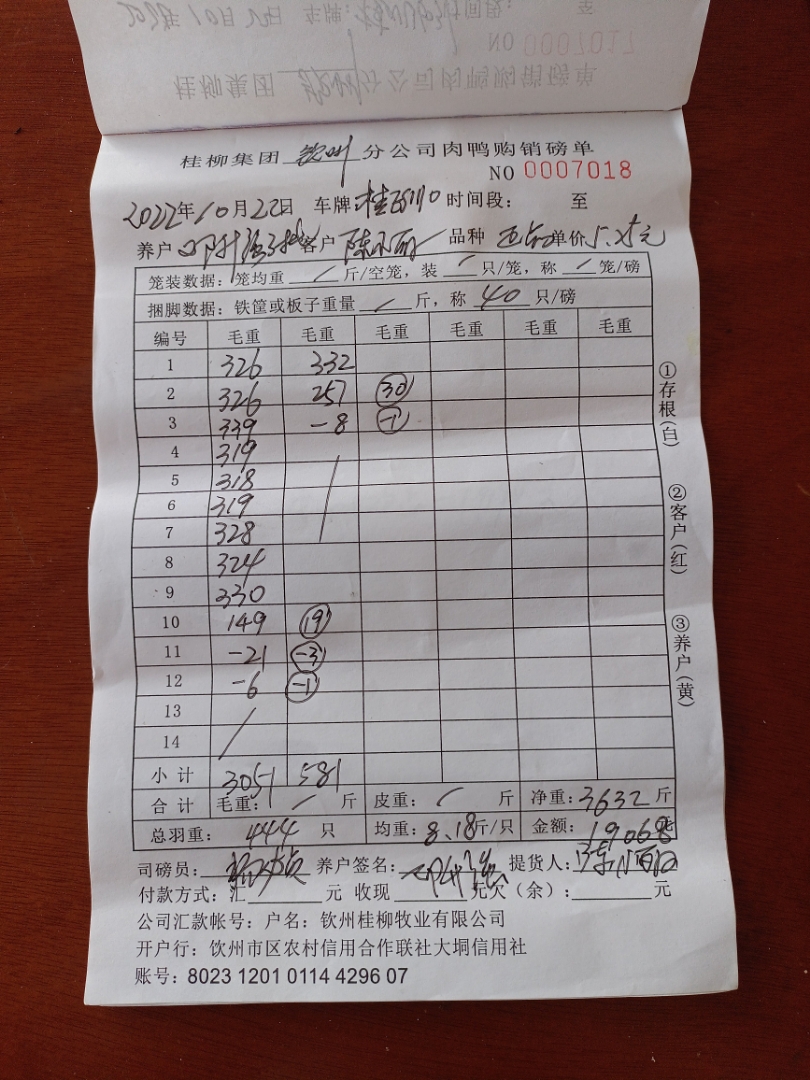 桂柳集团 钦州 分公司肉鸭购销磅单
NO 0007018
2022年10月22日 车牌: 时间段: 至
养户 客户 陈小丽 品种 单价5.25元
笼装数据:笼均重 / 斤/空笼,装 / 只/笼,称 / 笼/磅
捆脚数据:铁筐或板子重量 / 斤,称 40 只/磅
编号 毛重 毛重 毛重 毛重 毛重 毛重
1 326 332
2 326 257 30
3 339 -8 -1
4 319
5 318
6 319
7 328
8 324
9 330
10 149 19
11 -21 -3
12 -6 -1
13 /
14
小计 3051 581
合计 毛重: / 斤 皮重: / 斤 净重:3632斤
总羽重: 444 只 均重:8.18斤/只 金额:19068元
司磅员: 养户签名: 提货人:陈小丽
付款方式:汇 元 收现 元欠(余): 元
公司汇款帐号:户名:钦州桂柳牧业有限公司
开户行:钦州市区农村信用合作联社大垌信用社
账号:8023 1201 0114 4296 07
①存根(白)
②客户(红)
③养户(黄)